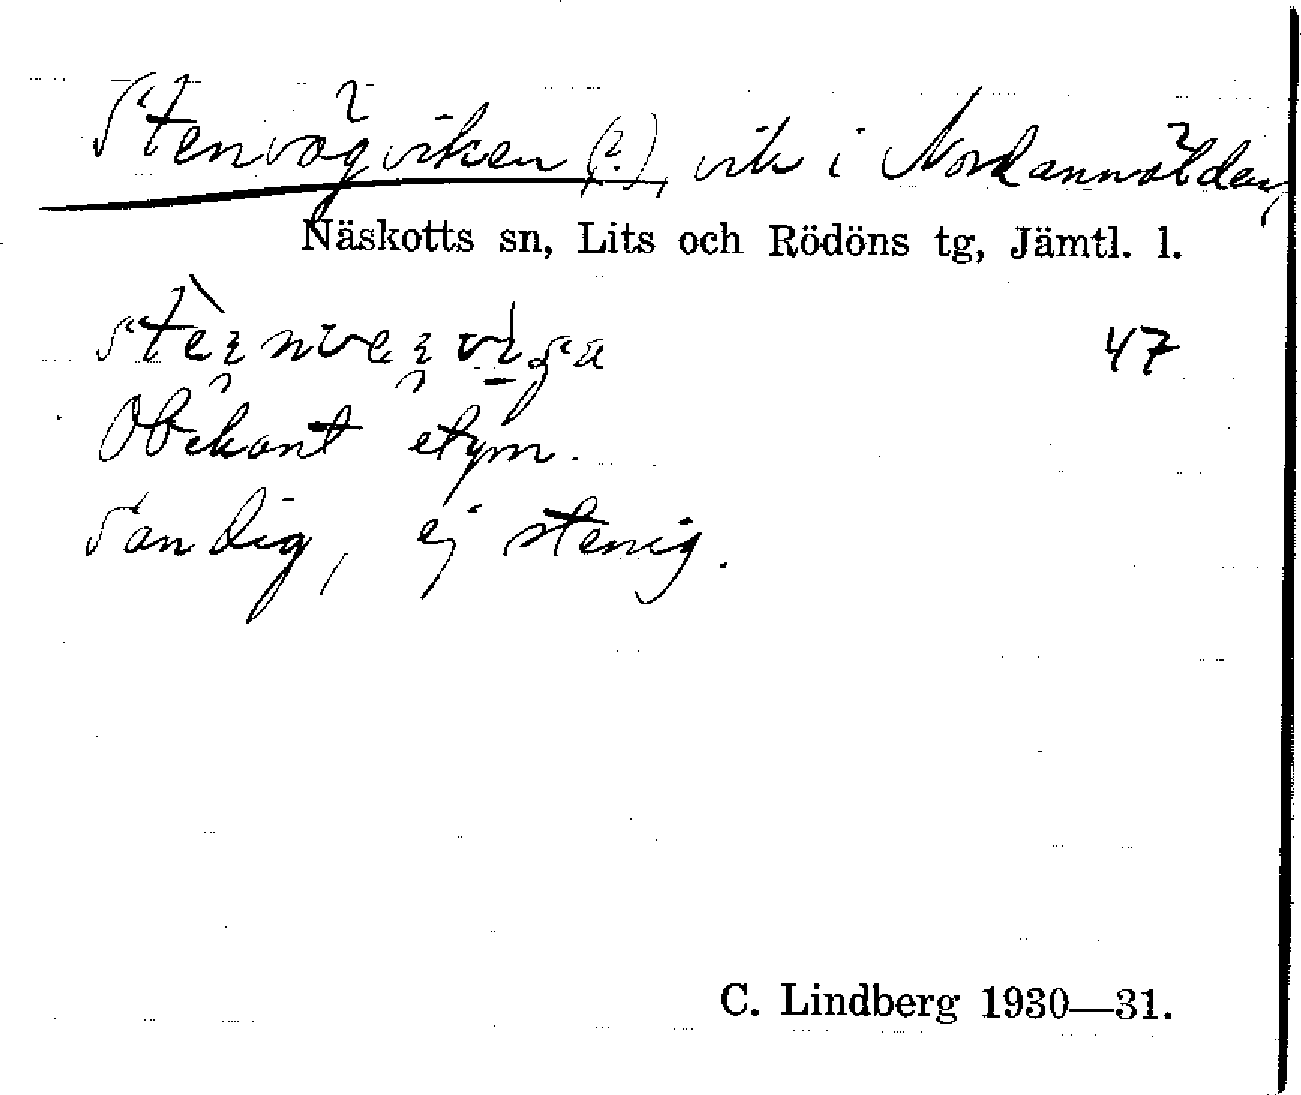 Stenvågviken (?), vik i Nordannälden,
Näskotts sn, Lits och Rödöns tg, Jämtl. l.
47
Obekant etym.
Sandig, ej stenig.
C. Lindberg 1930—31.